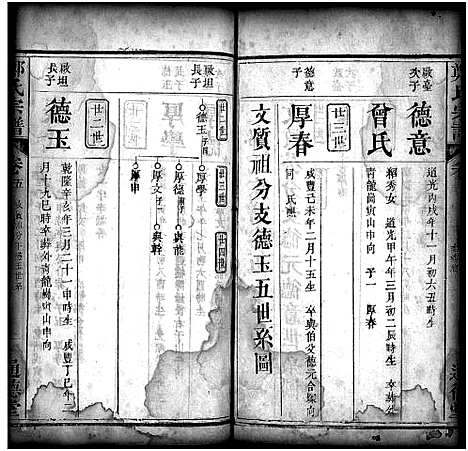 啟臺
次子
德意
道光丙戌年十一月初六丑時生
曾氏
稻秀女 道光甲午年三月初二辰時生
青龍崗寅山申向 子一 厚春
廿三世
德意
子
厚春
咸豐己未年二月十五生 卒與伯父德元合塚向
同 氏
文質祖分支德玉五世系圖
廿二世
廿三世
廿四世
啟坦
長子
德玉 子四
厚學
厚德 子一
與龍
厚文 子一
與幹
厚申
廿二世
啟坦
長子
德玉
乾隆辛亥年三月二十一申時生 咸豐丁巳年二
月十九巳時卒葬於青龍崗寅山申向
氏宗譜
卷五
通德堂